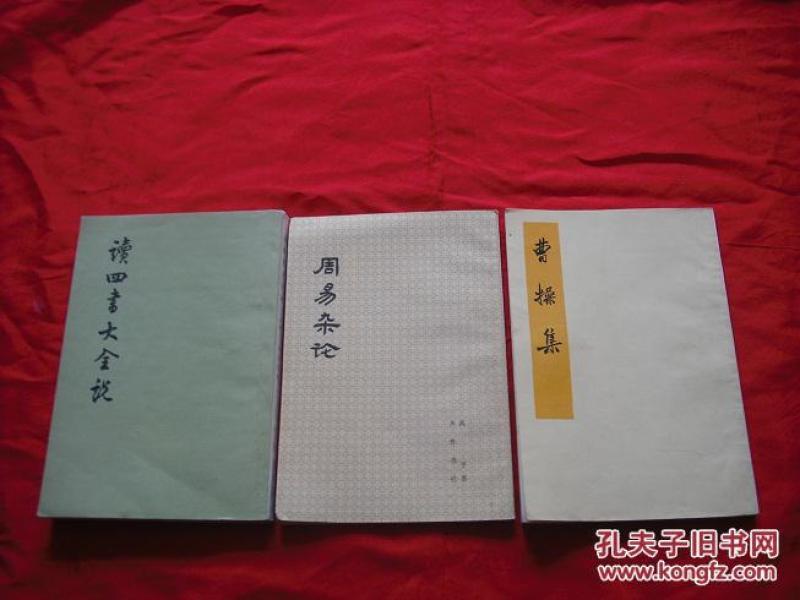 讀四書大全說
周易杂论
高亨著
齐鲁书社
曹操集
孔夫子旧书网
www.kongfz.com